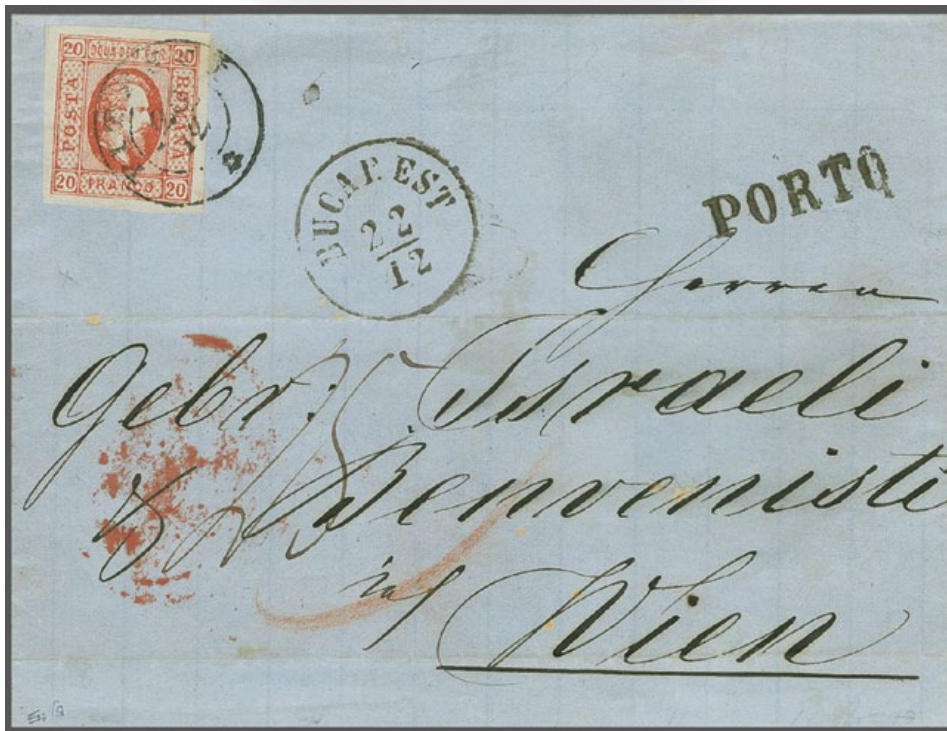 20 20
POSTA
ROMANA
20 FRANCO 20
BUCAREST
22
12
PORTO
Herren
Gebr: Israeli
& Benvenisti
in
Wien